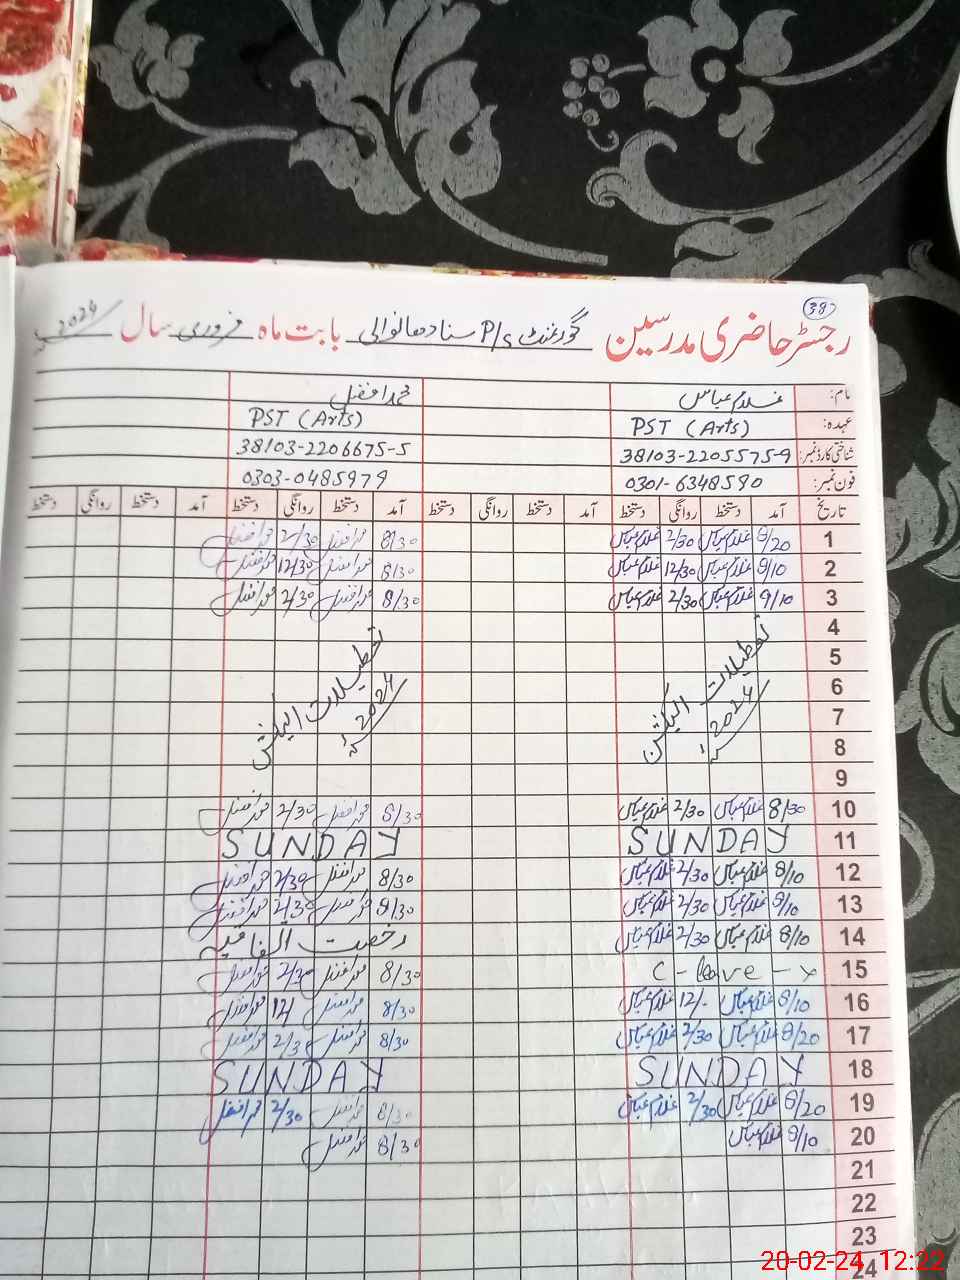 38
رجسٹر حاضری مدرسین گورنمنٹ P/S سنادھانوالی بابت ماہ فروری سال 2024ء
نام: غلام عباس محمد افضل
عہدہ: PST (Arts) PST (Arts)
شناختی کارڈ نمبر: 38103-2205575-9 38103-2206675-5
فون نمبر: 0301-6348590 0303-0485979
تاریخ آمد دستخط روانگی دستخط آمد دستخط روانگی دستخط آمد دستخط روانگی دستخط آمد دستخط روانگی دستخط
1 8/20 غلام عباس 2/30 غلام عباس 8/30 محمد افضل 2/30 محمد افضل
2 8/10 غلام عباس 12/30 غلام عباس 8/30 محمد افضل 12/30 محمد افضل
3 9/10 غلام عباس 2/30 غلام عباس 8/30 محمد افضل 2/30 محمد افضل
4
5
6
7
8
9
تعطیلات الیکشن 2024ء تعطیلات الیکشن 2024ء
10 8/30 غلام عباس 2/30 غلام عباس 8/30 محمد افضل 2/30 محمد افضل
11 SUNDAY SUNDAY
12 8/10 غلام عباس 2/30 غلام عباس 8/30 محمد افضل 2/30 محمد افضل
13 8/10 غلام عباس 2/30 غلام عباس 8/30 محمد افضل 2/30 محمد افضل
14 8/10 غلام عباس 2/30 غلام عباس رخصت اتفاقیہ
15 C-leave-x 8/30 محمد افضل 2/30 محمد افضل
16 8/10 غلام عباس 12/- غلام عباس 8/30 محمد افضل 12/ محمد افضل
17 8/20 غلام عباس 2/30 غلام عباس 8/30 محمد افضل 2/30 محمد افضل
18 SUNDAY SUNDAY
19 8/20 غلام عباس 2/30 غلام عباس 8/30 محمد افضل 2/30 محمد افضل
20 8/10 غلام عباس 8/30 محمد افضل
21
22
23
24
20-02-24, 12:22